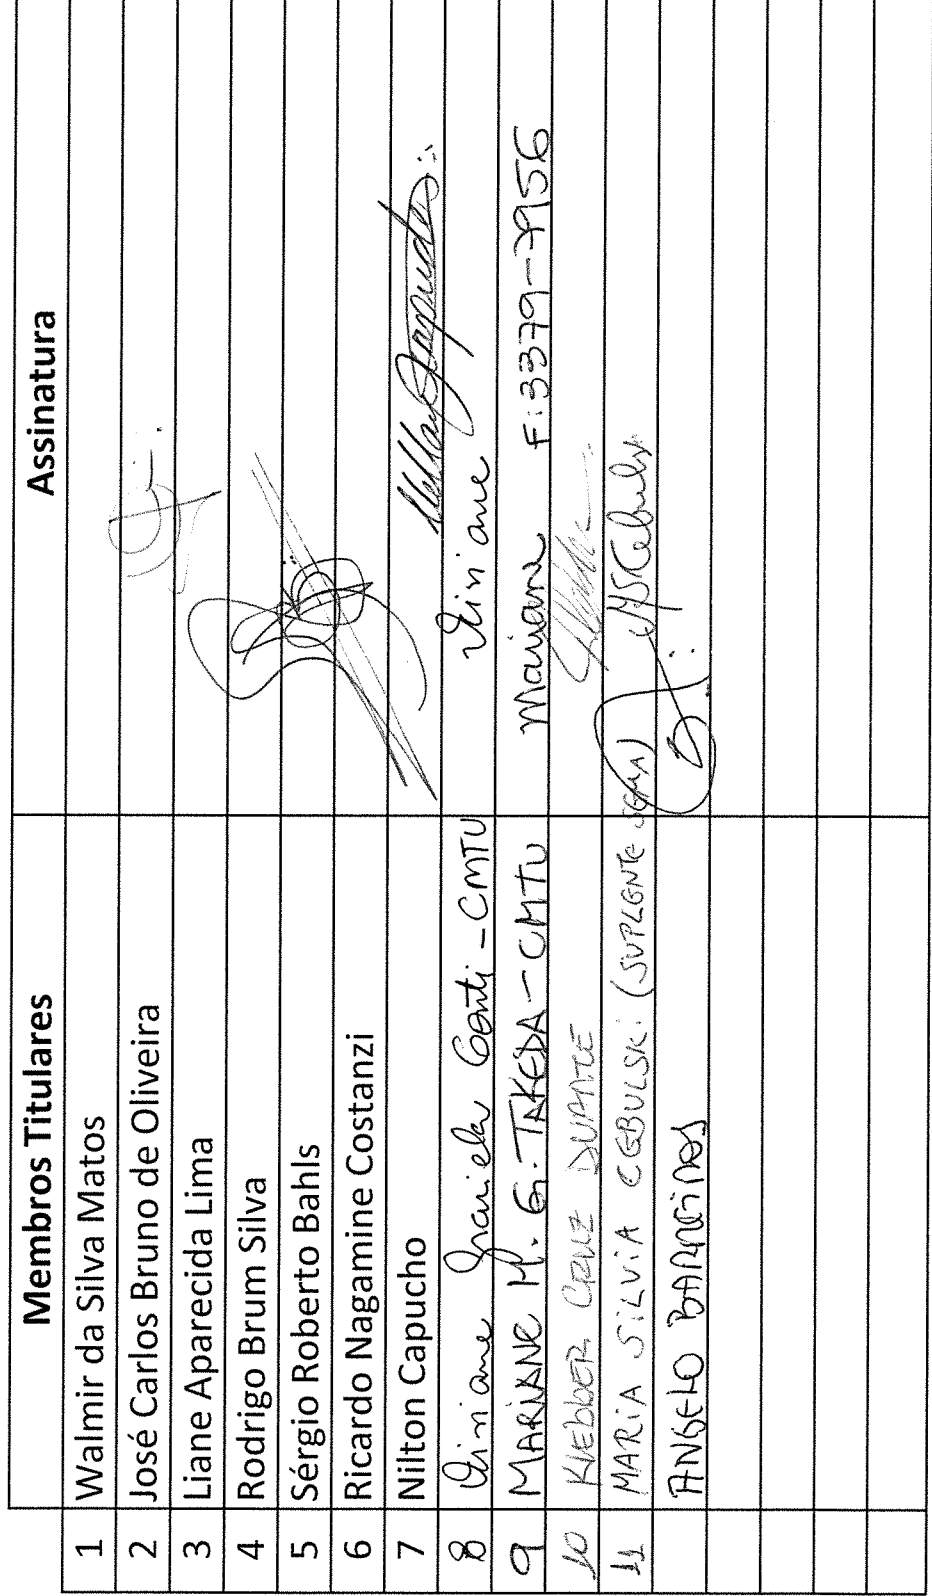 Membros Titulares Assinatura
1 Walmir da Silva Matos
2 José Carlos Bruno de Oliveira
3 Liane Aparecida Lima
4 Rodrigo Brum Silva
5 Sérgio Roberto Bahls
6 Ricardo Nagamine Costanzi
7 Nilton Capucho
8 Viviane Graziela Conti - CMTU Viviane
9 MARIANE M. G. TAKEDA - CMTU Mariane F: 3379-7956
10 KLEBBER CRUZ DUARTE
11 MARIA SILVIA CEBULSKI (SUPLENTE SEMA) MSCebulski
ANGELO BARREIROS